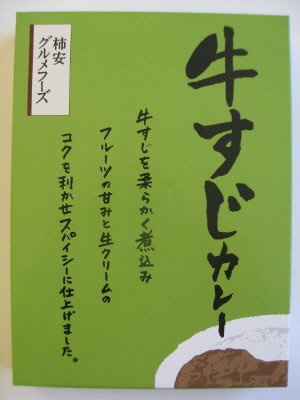 牛すじカレー
牛すじを柔らかく煮込み
フルーツの甘みと生クリームの
コクを利かせスパイシーに仕上げました。
柿安
グルメフーズ